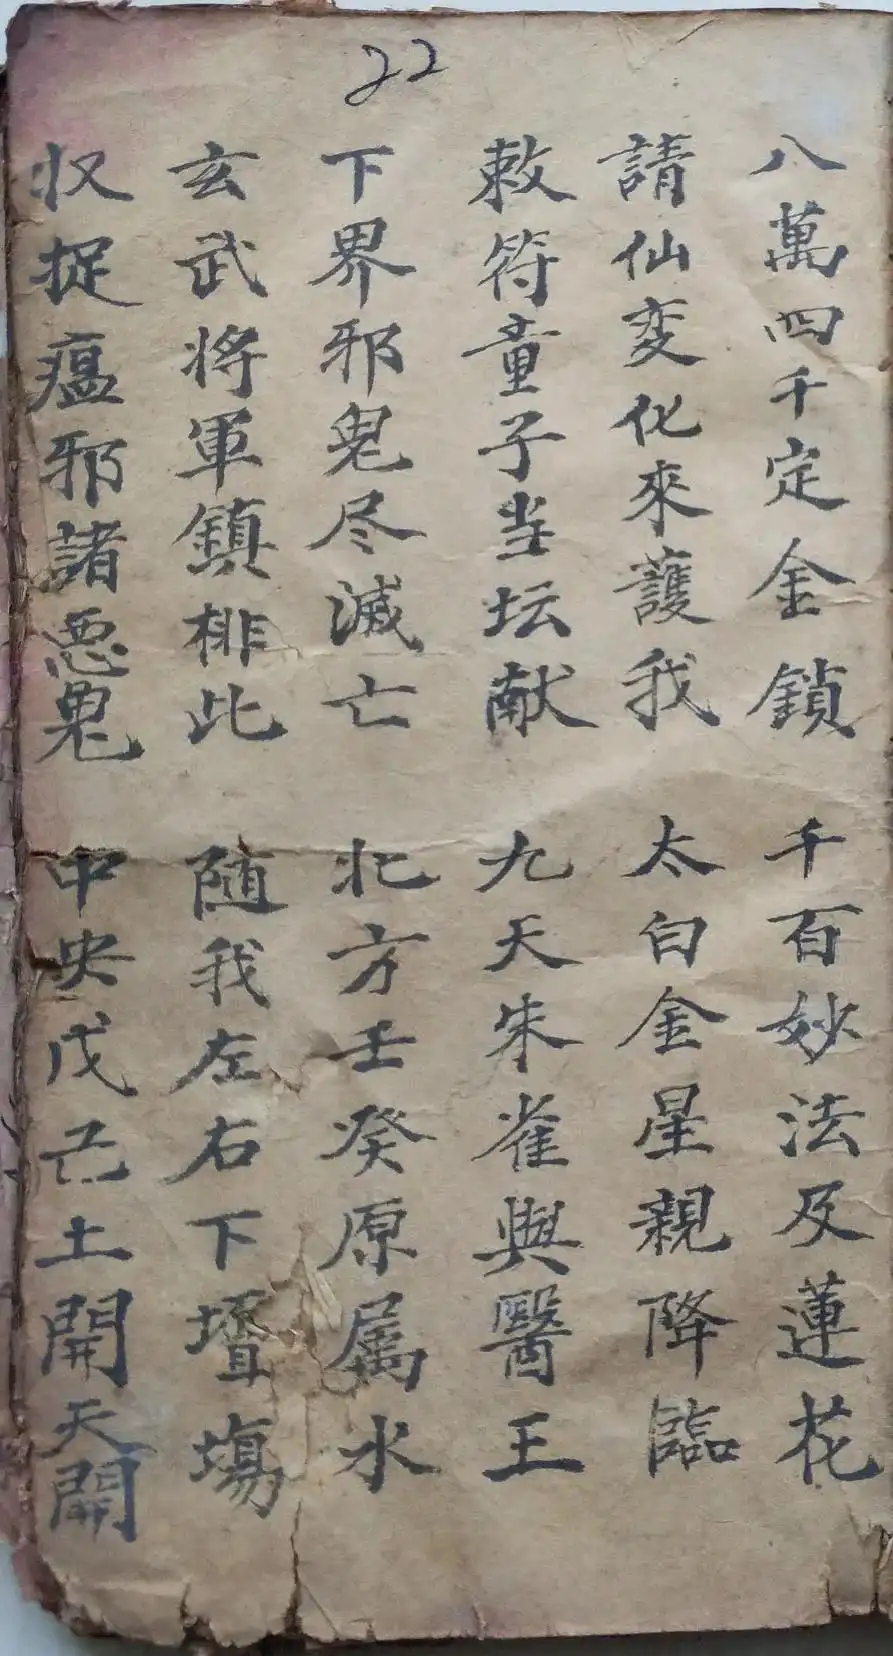 22
八萬四千定金鎖 千百妙法及蓮花
請仙变化來護我 太白金星親降臨
敕符童子当坛献 九天朱雀與醫王
下界邪鬼尽滅亡 北方壬癸原属水
玄武将軍鎮排此 随我左右下壇場
収捉瘟邪諸恶鬼 中央戊己土開天開